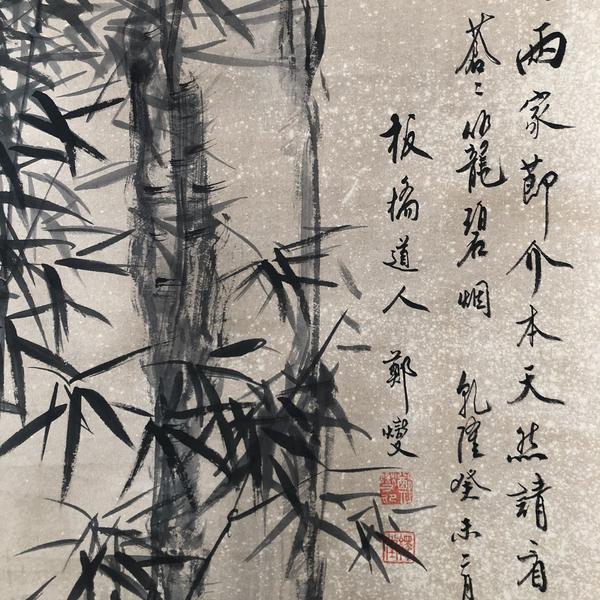 兩家節介本天然請看
蒼〻竹龍碧烟 乾隆癸未二月
板橋道人 鄭燮